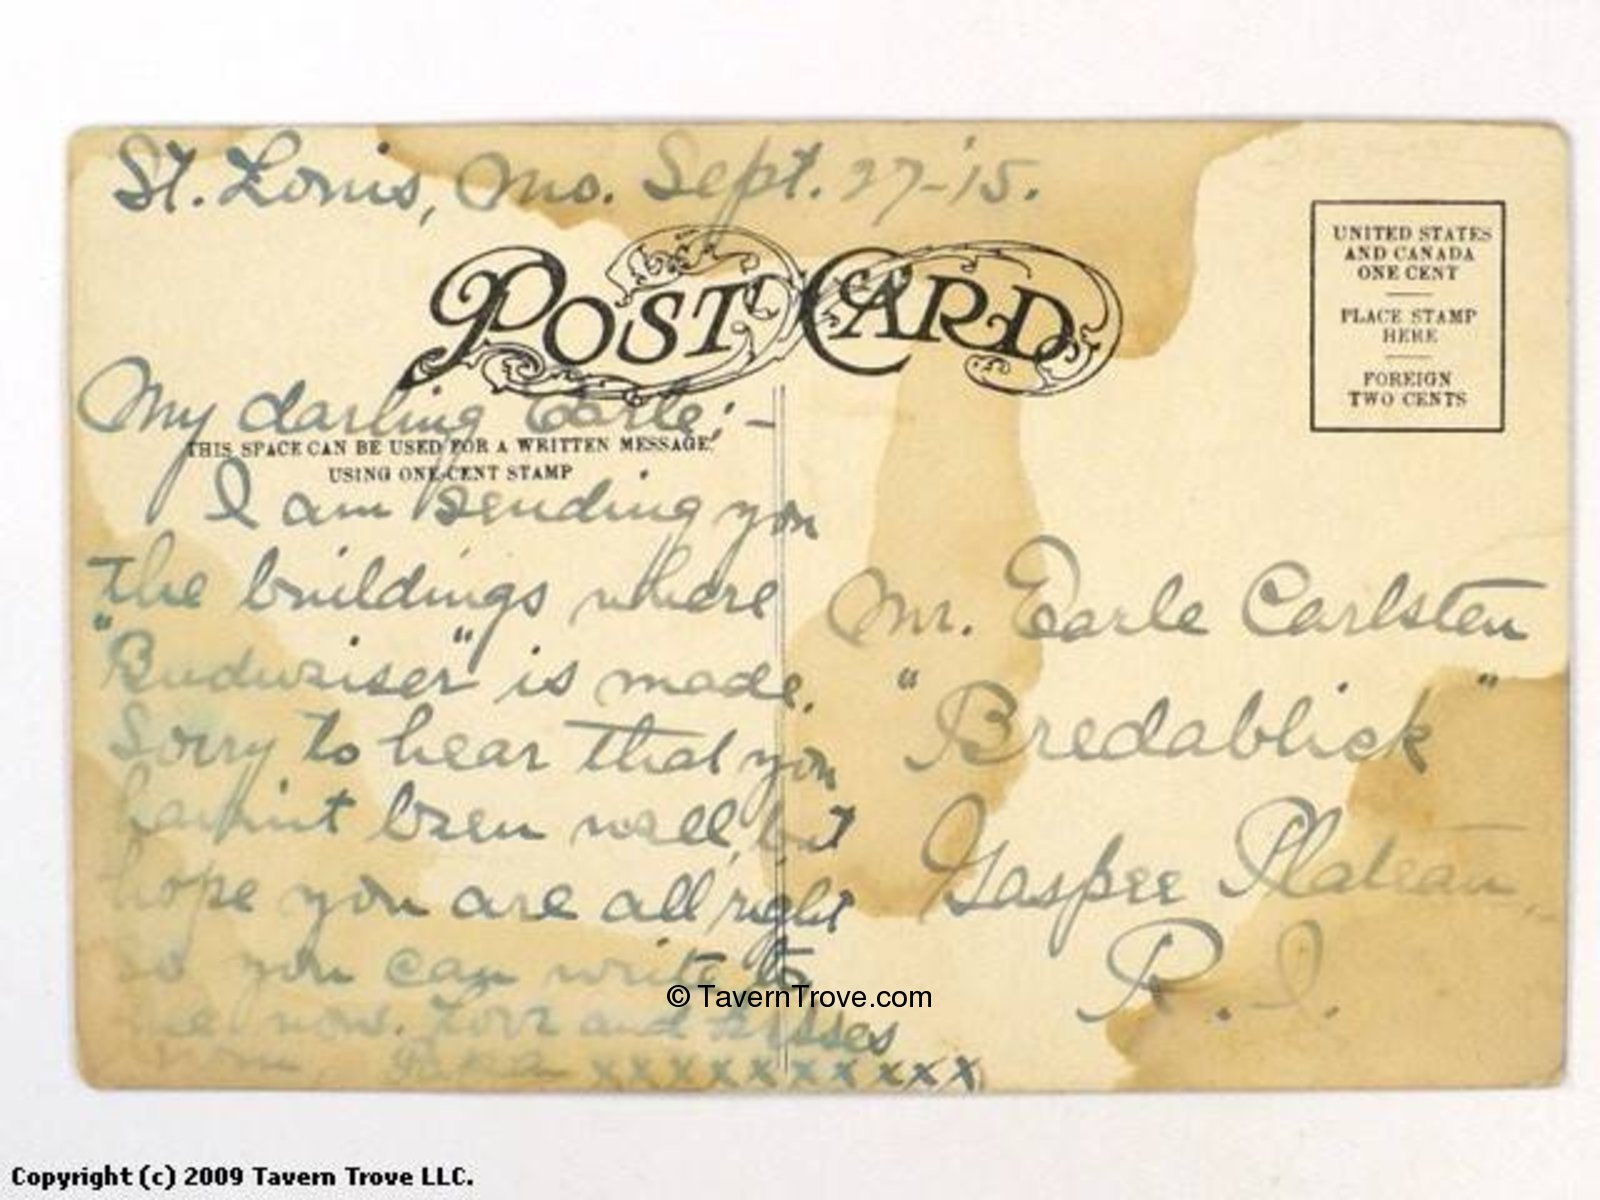 St. Louis, Mo. Sept. 27-'15.
POST CARD
UNITED STATES
AND CANADA
ONE CENT
PLACE STAMP
HERE
FOREIGN
TWO CENTS
My darling Earle;-
THIS SPACE CAN BE USED FOR A WRITTEN MESSAGE
USING ONE-CENT STAMP
I am sending you
the buildings where
"Budweiser" is made.
Sorry to hear that you
have'nt been well, but
hope you are all right
so you can write to
me now. Love and kisses
from Papa xxxxxxxxxx
Mr. Earle Carlsten
"Bredablick"
Gaspee Plateau,
R.I.
© TavernTrove.com
Copyright (c) 2009 Tavern Trove LLC.